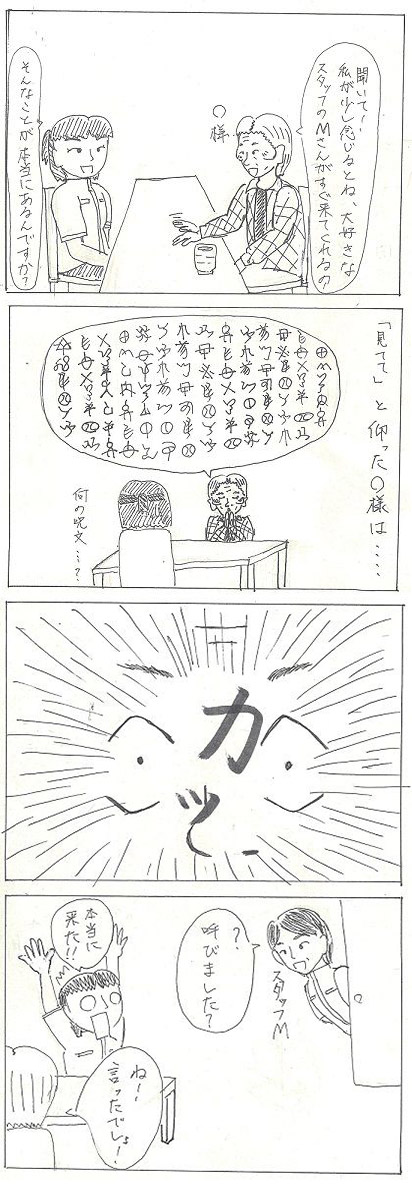 聞いて！
私が少し念じるとね、大好きな
スタッフのMさんがすぐ来てくれるの
〇様
そんなことが本当にあるんですか？
「見てて」と仰った〇様は……
何の呪文…？
カッ
？
呼びました？
スタッフM
本当に
来た!!
ね！
言ったでしょ！